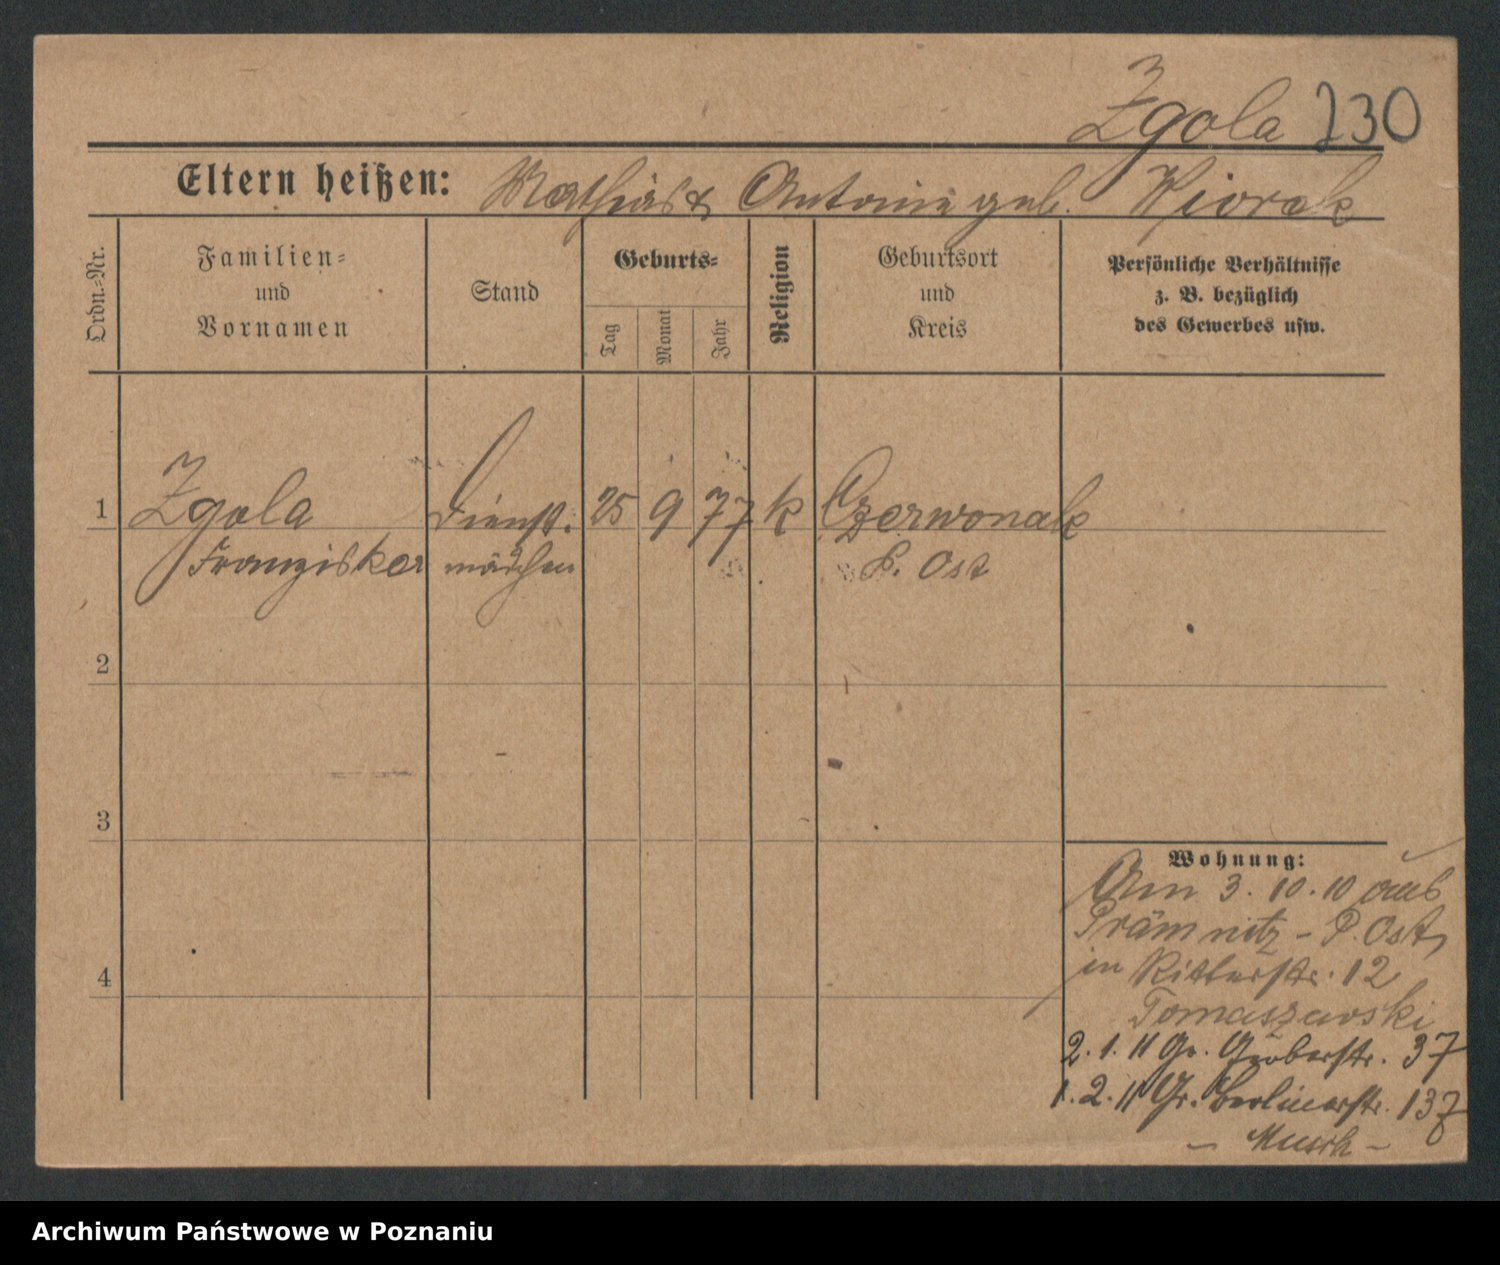 Zgola 230
Eltern heißen: Mathias & Antonie geb. Wiorek
Ordn.-Nr.
Familien-
und
Vornamen
Stand
Geburts-
Tag
Monat
Jahr
Religion
Geburtsort
und
Kreis
Persönliche Verhältnisse
z. B. bezüglich
des Gewerbes usw.
1 Zgola Dienst- 25 9 77 k Czerwonak
Franziska mädchen P. Ost
2
3
4
Wohnung:
Am 3. 10. 10 aus
Prämnitz - P. Ost,
in Ritterstr. 12
Tomaszewski
2. 1. 11 Gr. Gerberstr. 37
1. 2. 11 Gr. Berlinerstr. 137
Archiwum Państwowe w Poznaniu